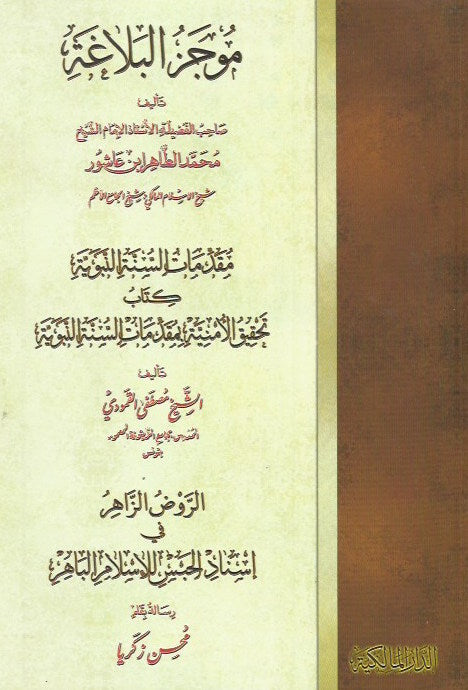 مُوجَزُ البَلَاغَةِ
تأليف
صاحب الفضيلة الأستاذ الإمام الشيخ
محمد الطاهر ابن عاشور
شيخ الإسلام المالكي وشيخ الجامع الأعظم
مُقَدِّمَاتُ السُّنَّةِ النَّبَوِيَّةِ
كِتَابُ
تَحْقِيقُ الأُمْنِيَّةِ بِمُقَدِّمَاتِ السُّنَّةِ النَّبَوِيَّةِ
تأليف
الشيخ مصطفى القمودي
المدرس بجامع الزيتونة المعمور
بتونس
الرَّوْضُ الزَّاهِرُ
في
إسْنَادِ الحَبْسِ لِلإِسْلَامِ البَاهِرْ
رسالة بقلم
محسن زكريا
الدار المالكية